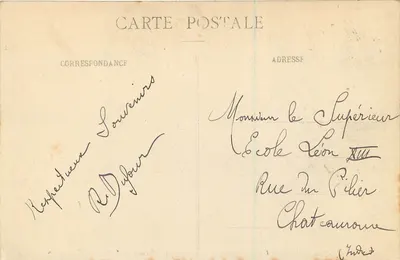 CARTE POSTALE
CORRESPONDANCE
ADRESSE
Respectueux Souvenirs
R. Dufour
Monsieur le Supérieur
Ecole Léon XIII
Rue du Pilier
Chateauroux
(Indre)